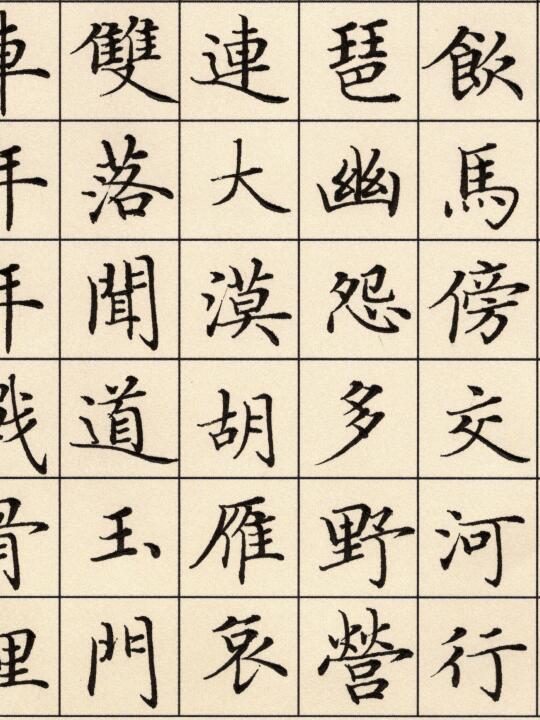 飲馬傍交河行
琶幽怨多野營
連大漠胡雁哀
雙落聞道玉門
車年年戰骨埋